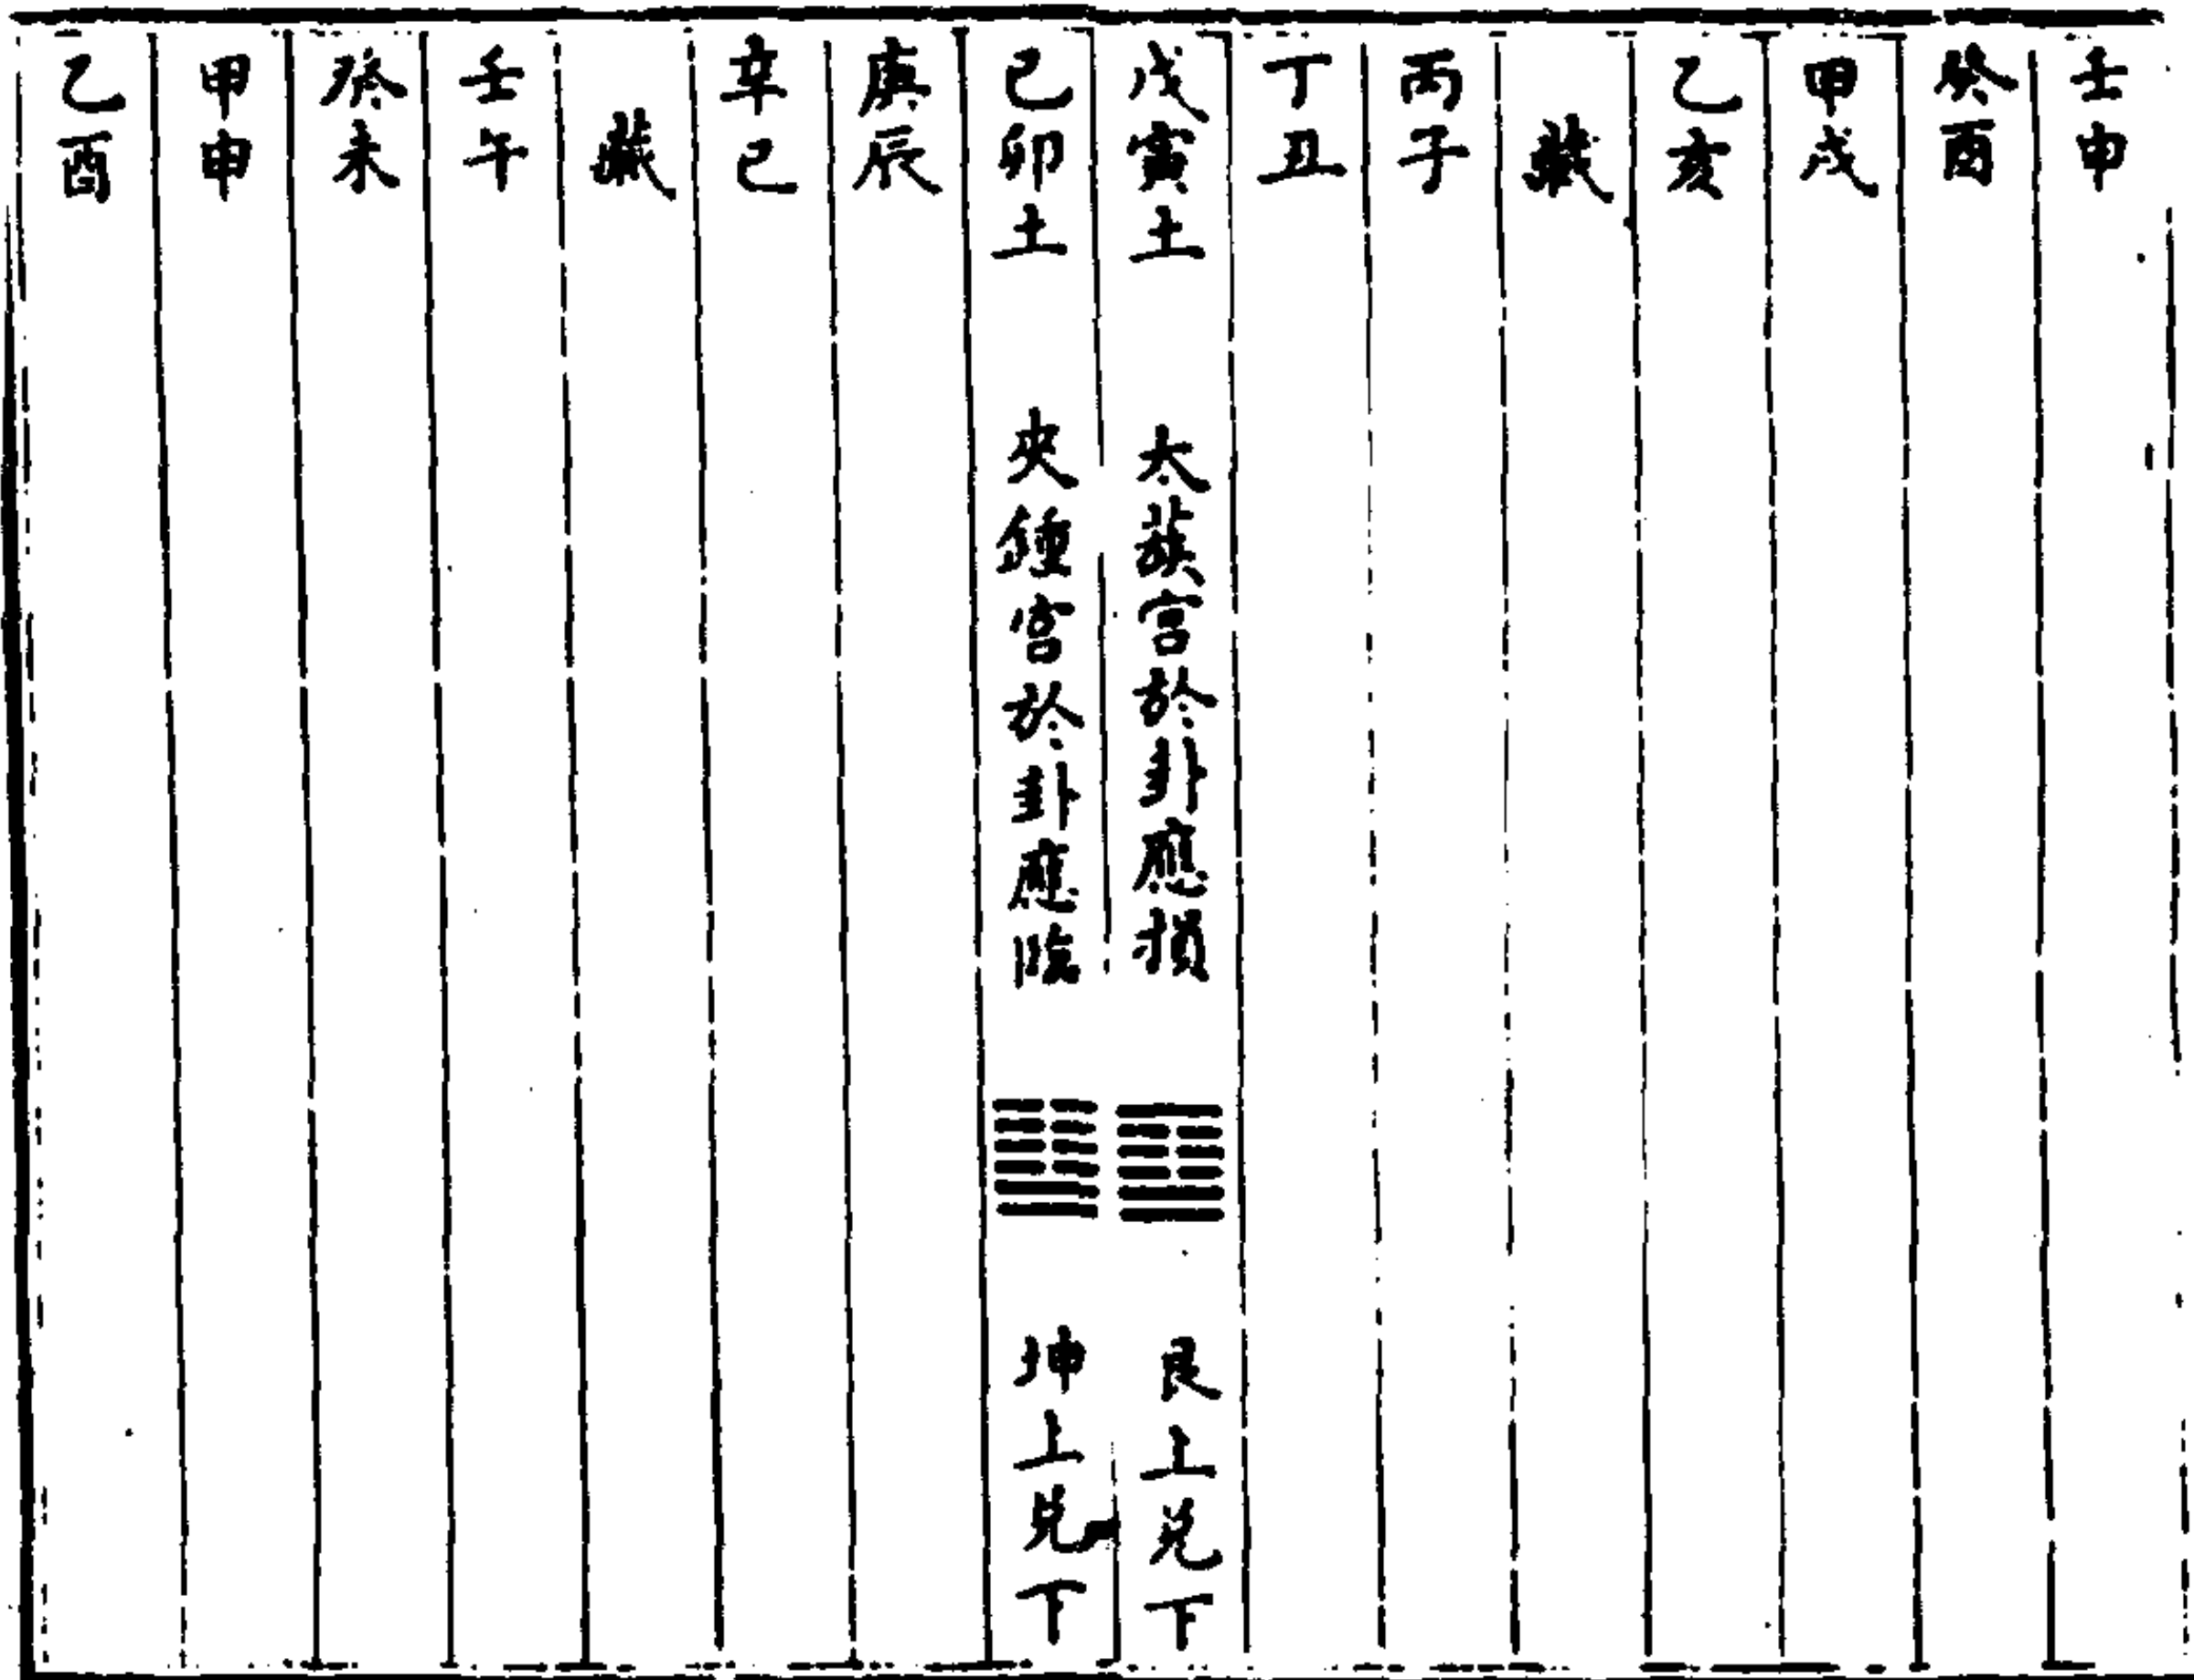 壬申
癸酉
甲戌
乙亥
藏
丙子
丁丑
戊寅土 太蔟宮於卦應損 ䷨ 艮上兌下
己卯土 夾鍾宮於卦應臨 ䷒ 坤上兌下
庚辰
辛巳
藏
壬午
癸未
甲申
乙酉